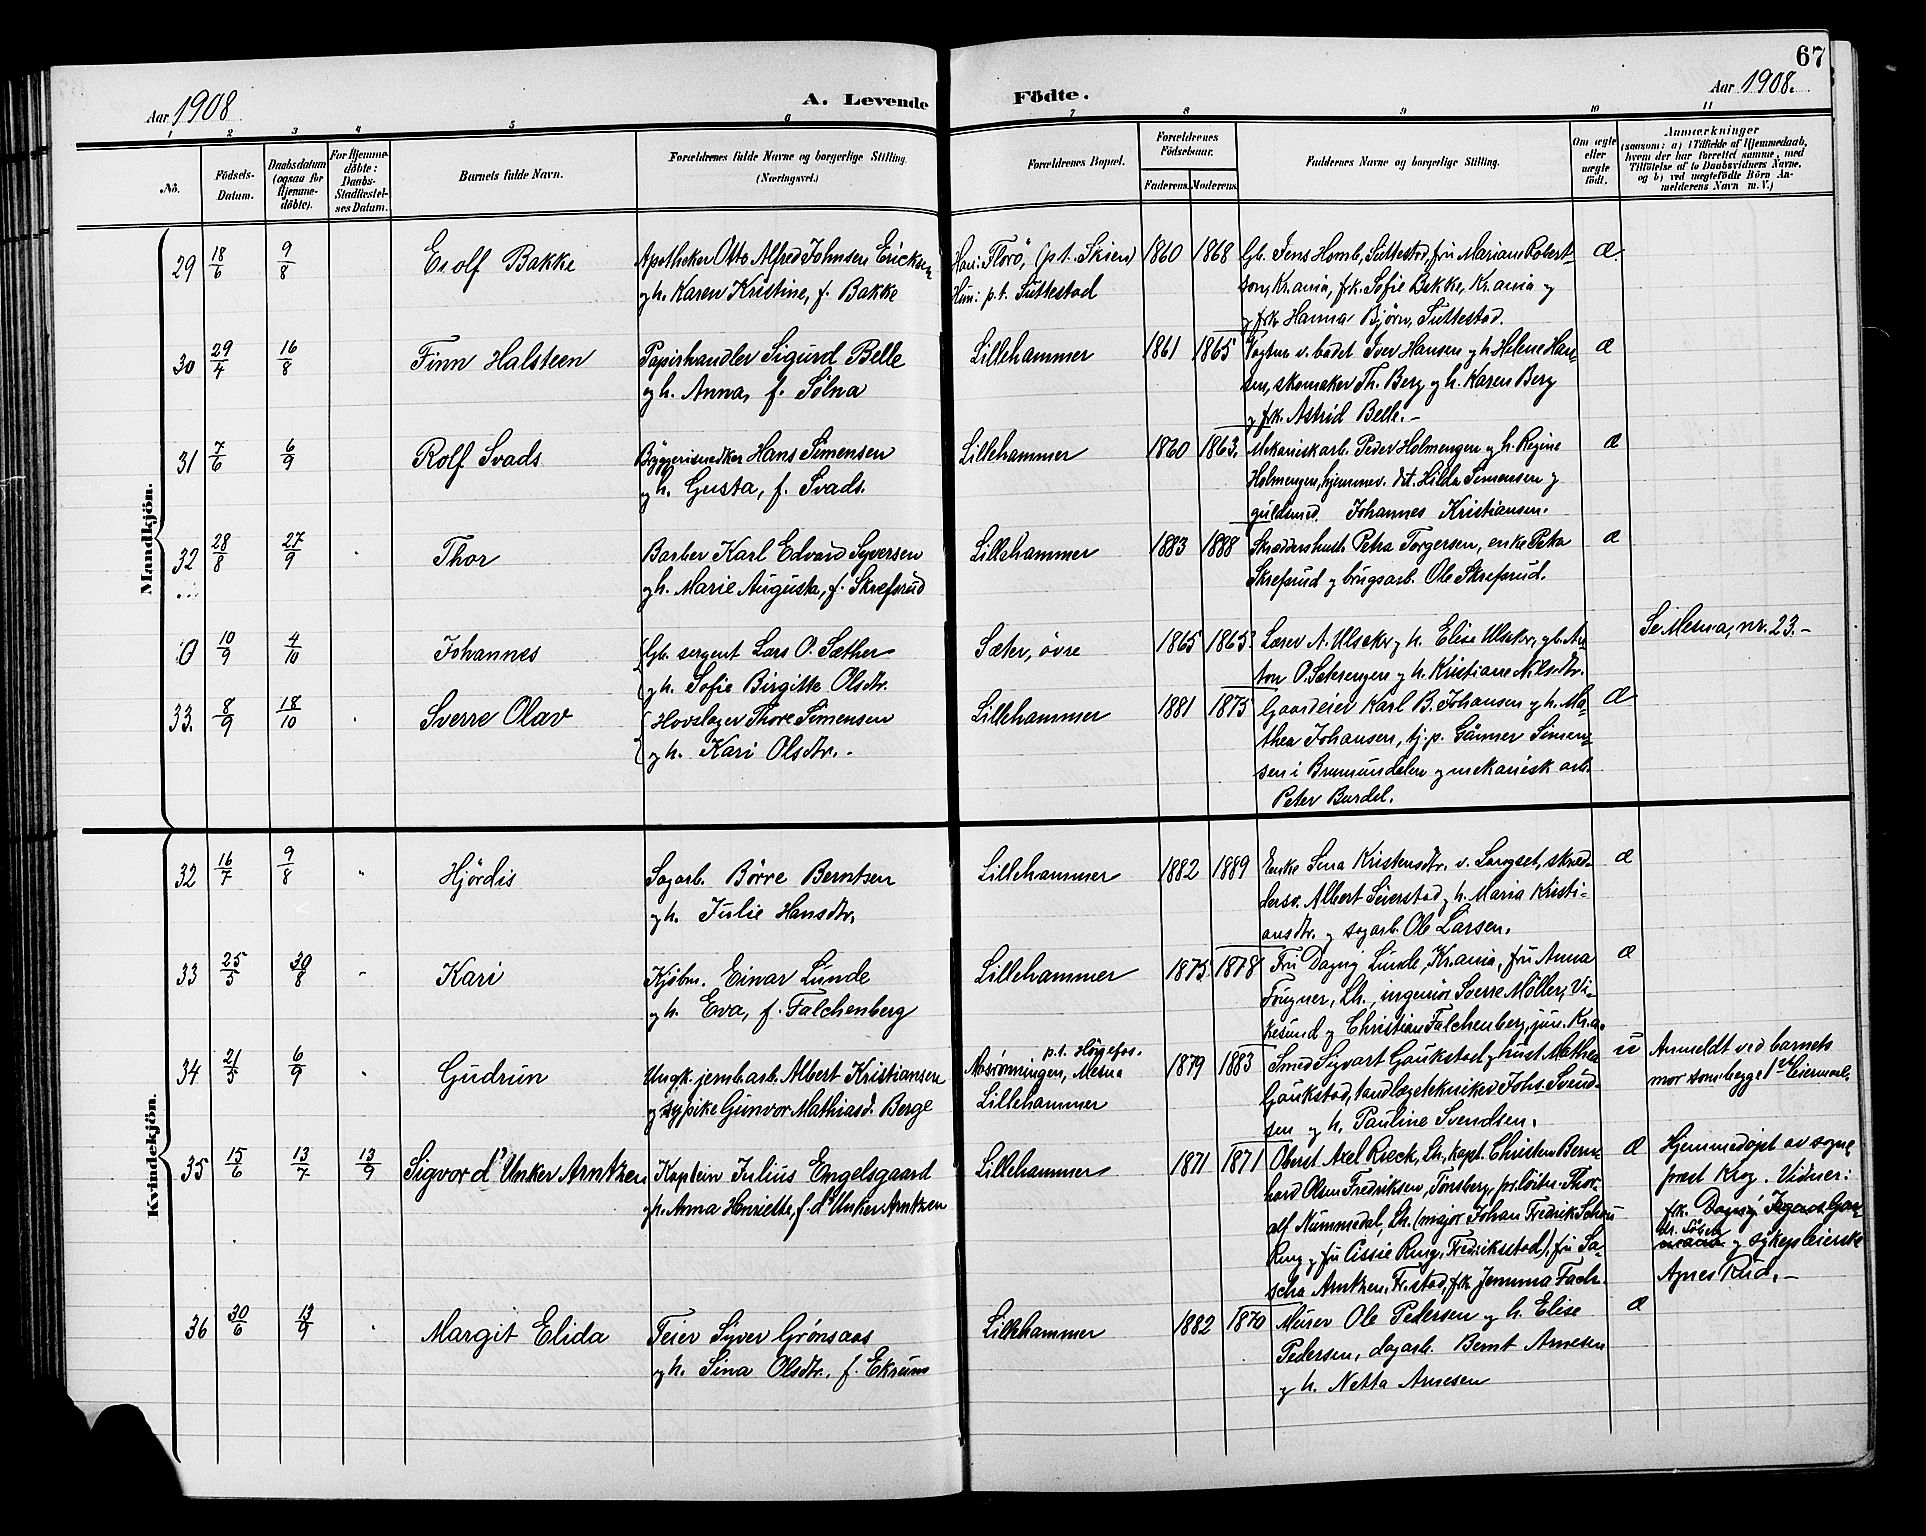 67
Aar 1908
A. Levende Födte.
Aar 1908.
1 2 3 4 5 6 7 8 9 10 11
No.
Födsels-
Datum.
Daabsdatum
(ogsaa for
Hjemme-
döbte).
For Hjemme-
döbte:
Daabs-
Stadfæstel-
ses Datum.
Barnets fulde Navn.
Forældrenes fulde Navne og borgerlige Stilling.
(Næringsvei.)
Forældrenes Bopæl.
Forældrenes
Födselsaar.
Faderens. Moderens.
Faddernes Navne og borgerlige Stilling.
Om ægte
eller
uægte
født.
Anmærkninger
(saasom: a) i Tilfælde af Hjemmedaab,
hvem der har forrettet samme, med
Tilföielse af to Daabsvidners Navne,
og b) ved uægtefödte Börn An-
melderens Navn m. V.)
Mandkjön.
29 18/6 9/8 Erolf Bakke
Apotheker Otto Alfred Johnsen Ericksen
og h. Karen Kristine, f. Bakke
Han: Florö, (p.t. Skien)
Hun: p.t. Suttestad
1860 1868
Gb. Jens Homb, Suttestad, fru Mariane Robert-
son, Kr.ania, frk. Sofie Bakke, Kr.ania og
og frk Hanna Björn, Suttestad.
æ.
30 29/4 16/8 Finn Halsteen
Papirhandler Sigurd Belle
og h. Anna, f. Sølna
Lillehammer
1861 1865
Vogtm. v. badet Iver Hansen og h Helene Han-
sen, skomaker Th. Berg og h. Karen Berg
og frk. Astrid Belle.-
æ
31 7/6 6/9 Rolf Svads
Byggerisnedker Hans Simensen
og h. Gusta, f. Svads.
Lillehammer
1860 1863.
Mekaniskarb. Peder Holmengen og h. Regine
Holmengen, hjemmev. dat. Hilda Simensen og
guldsmed. Johannes Kristiansen.
æ
32 28/8 27/9 Thor
Barber Karl Edvard Syversen
og h. Marie Augusta, f. Skrefsrud
Lillehammer
1883 1888
Petra Torgersen, enke Petra
Skrefsrud og brugsarb. Ole Skrefsrud.
æ
0 10/9 4/10 Johannes
Gb. sergent Lars O. Sæther
og h. Sofie Birgitte Olsdtr.
Sæter, øvre
1865 1865.
Lærer A. Ulsaker og h. Elise Ulsaker, gb. An-
ton O. Sætrengen og h. Kristiane Nilsdtr.
Se Mesna, nr. 23.-
33. 8/9 18/10 Sverre Olav
Hovslager Thore Simensen
og h. Kari Olsdtr.-
Lillehammer
1881 1875
Gaardeier Karl B. Johansen og h. Ma-
thea Johansen, tj.p. Gunner Simen-
sen i Brumundalen og mekanisk arb.
Peter Burdel.
æ
Kvindekjön.
32 16/7 9/8 Hjördis
Sagarb. Börre Berntsen
og h. Julie Hansdtr.
Lillehammer
1882 1889
Enke Sina Kristensdtr. v. Langset, skræd-
dersv. Albert Seierstad og h. Maria Kristi-
ansdtr. og sagarb. Ole Larsen.
æ
33 25/5 30/8 Kari
Kjöbm. Einar Lunde
og h. Eva, f. Falchenberg
Lillehammer
1875 1878
Fru Dagny Lunde, Kr.ania, fru Anna
Frugner, Lh., ingeniør Sverre Möller, Vi-
kesund og Christian Falchenberg, jun. Kr.a.
æ
34 21/5 6/9 Gudrun
Ungk. jernb.arb. Albert Kristiansen
og sypike Gunvor Mathiasd. Berge
p.t. Hönefos.
Mesna
Lillehammer
1879 1883
Smed Sigvart Gaukstad og hust. Mathea
Gaukstad, tandlægetekniker Johs. Svend-
sen og h. Pauline Svendsen.
u
Anmeldt ved barnets
mor som begge 1ste leiermaal.
35 15/6 13/7 13/9 Sigvor d'Unker Arntzen
Kaptein Julius Engelsgaard
og h. Anna Henriette, f. d'Unker Arntzen
Lillehammer
1871 1871
Oberst Axel Rieck, Lh., kapt. Christen Bern-
hard Olsen Fredriksen, Tønsberg, pr.löitn. Thor-
alf Nummedal, Lh. (major Johan Fredrik Schou
Ring og fru Cissie Ring, Fredrikstad), fru Sa-
scha Arntzen, Fr.stad, frk. Jemima Fach.
æ
Hjemmedøpt av sogne-
prest Krog. Vidner:
frk. Dagny
og sykepleierske
Agnes Rud.-
36 30/6 13/9 Margit Elida
Feier Syver Grönsaas
og h. Sina Olsdtr. f. Ekrum
Lillehammer
1882 1870
Murer Ole Pedersen og h. Elise
Pedersen, dagarb. Bernt Arnesen
og h. Netta Arnesen
æ